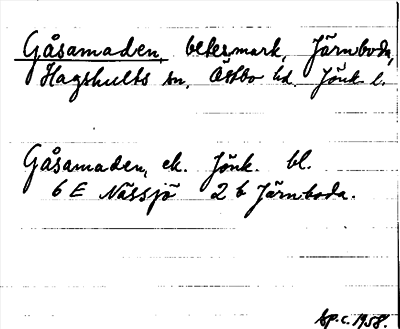 Gåsamaden, betesmark, Järnboda,
Hagshults sn, Östbo hd. Jönk. l.
Gåsamaden, ek. Jönk. bl.
6 E Nässjö 2 b Järnboda.
Sp.c. 1958.